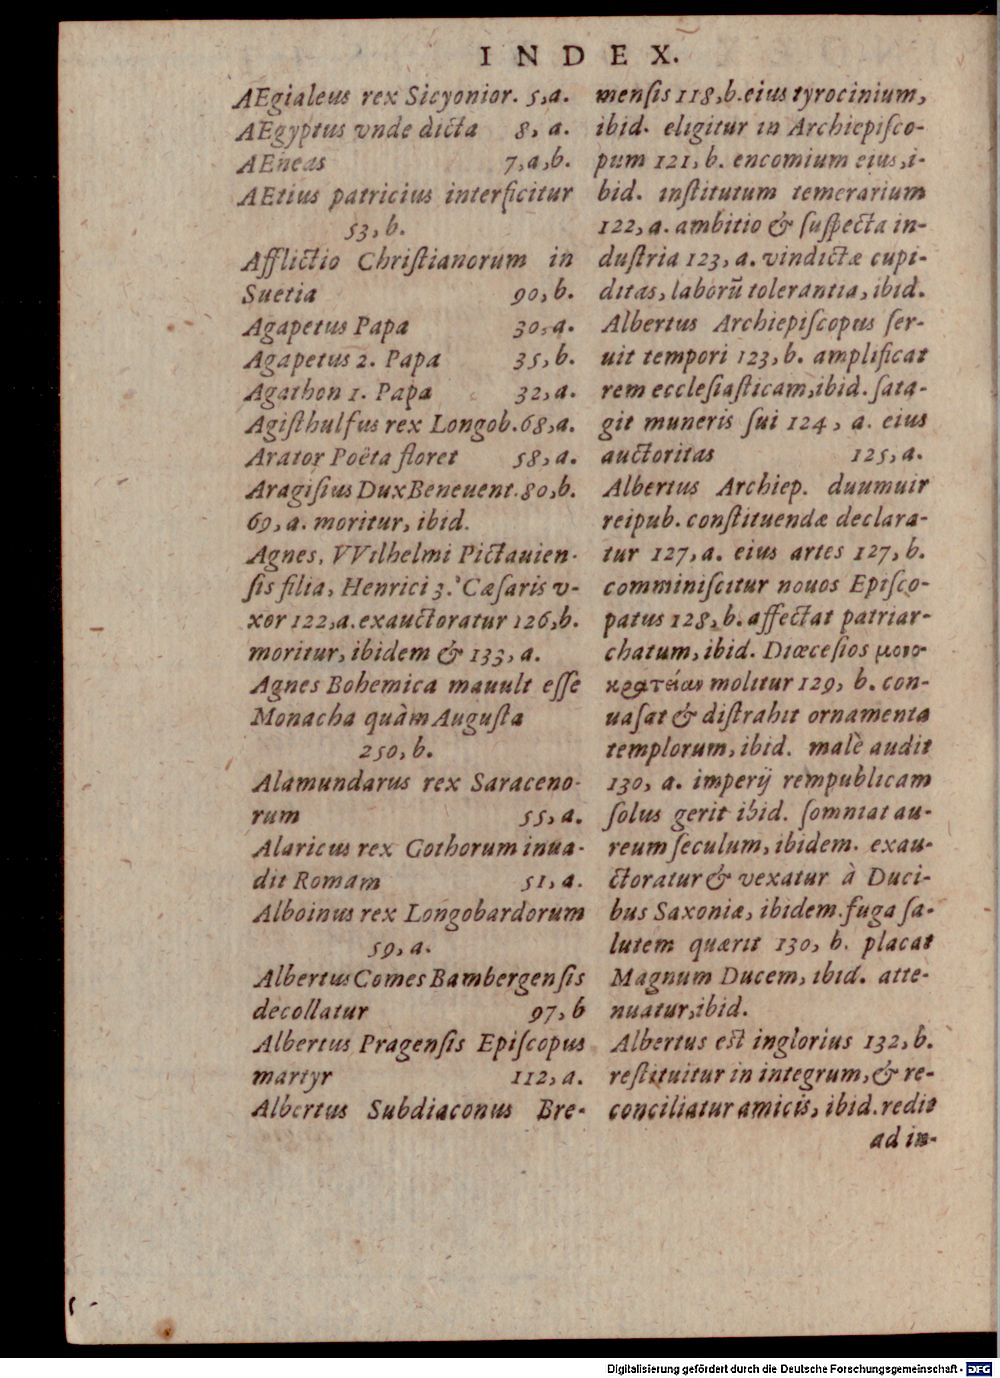 INDEX.
AEgialeus rex Sicyonior. 5,a.
AEgyptus vnde dicta 8, a.
AEneas 7,a,b.
AEtius patricius interficitur
53, b.
Afflictio Chriſtianorum in
Suetia 90, b.
Agapetus Papa 30, a.
Agapetus 2. Papa 35, b.
Agathon 1. Papa 32, a.
Agiſthulfus rex Longob. 68, a.
Arator Poëta floret 58, a.
Aragiſius Dux Beneuent. 80, b.
69, a. moritur, ibid.
Agnes, VVilhelmi Pictauien-
ſis filia, Henrici 3. Cæſaris v-
xor 122, a. exauctoratur 126, b.
moritur, ibidem & 133, a.
Agnes Bohemica mauult eſſe
Monacha quàm Auguſta
250, b.
Alamundarus rex Saraceno-
rum 55, a.
Alaricus rex Gothorum inua-
dit Romam 51, a.
Alboinus rex Longobardorum
59, a.
Albertus Comes Bambergenſis
decollatur 97, b
Albertus Pragenſis Epiſcopus
martyr 112, a.
Albertus Subdiaconus Bre-
menſis 118, b. eius tyrocinium,
ibid. eligitur in Archiepiſco-
pum 121, b. encomium eius, i-
bid. inſtitutum temerarium
122, a. ambitio & ſuſpecta in-
duſtria 123, a. vindictæ cupi-
ditas, laborū tolerantia, ibid.
Albertus Archiepiſcopus ſer-
uit tempori 123, b. amplificat
rem eccleſiaſticam, ibid. ſata-
git muneris ſui 124, a. eius
auctoritas 125, a.
Albertus Archiep. duumuir
reipub. conſtituendæ declara-
tur 127, a. eius artes 127, b.
comminiſcitur nouos Epiſco-
patus 128, b. affectat patriar-
chatum, ibid. Diœceſios μονο-
κρατείαν molitur 129, b. con-
uaſat & diſtrahit ornamenta
templorum, ibid. malè audit
130, a. imperij rempublicam
ſolus gerit ibid. ſomniat au-
reum ſeculum, ibidem. exau-
ctoratur & vexatur à Duci-
bus Saxoniæ, ibidem. fuga ſa-
lutem quærit 130, b. placat
Magnum Ducem, ibid. atte-
nuatur, ibid.
Albertus eſt inglorius 132, b.
reſtituitur in integrum, & re-
conciliatur amicis, ibid. redit
ad in-
Digitalisierung gefördert durch die Deutsche Forschungsgemeinschaft - DFG